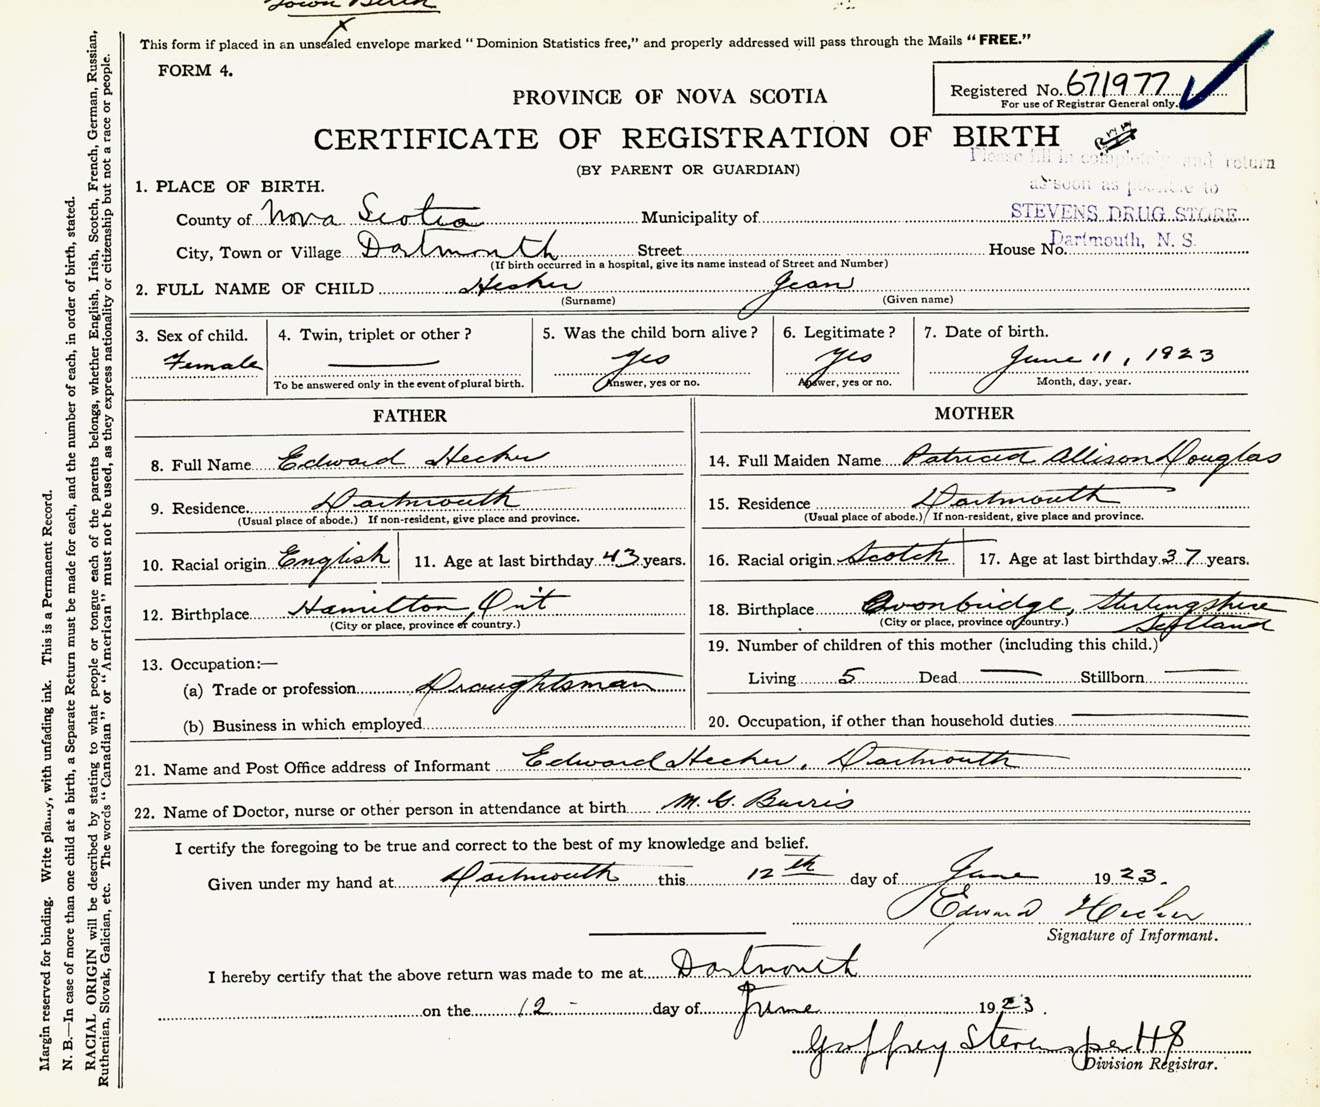 Town Birth
This form if placed in an unsealed envelope marked “Dominion Statistics free,” and properly addressed will pass through the Mails “FREE.”
FORM 4.
Registered No. 671977
For use of Registrar General only.
PROVINCE OF NOVA SCOTIA
CERTIFICATE OF REGISTRATION OF BIRTH
(BY PARENT OR GUARDIAN)
Please fill in completely and return
as soon as possible to
STEVENS DRUG STORE
Dartmouth, N. S.
1. PLACE OF BIRTH.
County of Nova Scotia Municipality of
City, Town or Village Dartmouth Street House No.
(If birth occurred in a hospital, give its name instead of Street and Number)
2. FULL NAME OF CHILD Hecker Jean
(Surname) (Given name)
3. Sex of child. 4. Twin, triplet or other? 5. Was the child born alive? 6. Legitimate? 7. Date of birth.
Female Yes Yes June 11, 1923
To be answered only in the event of plural birth. Answer, yes or no. Answer, yes or no. Month, day, year.
FATHER MOTHER
8. Full Name Edward Hecker
9. Residence Dartmouth
(Usual place of abode.) If non-resident, give place and province.
10. Racial origin English 11. Age at last birthday 43 years.
12. Birthplace Hamilton, Ont
(City or place, province or country.)
13. Occupation:—
(a) Trade or profession Draughtsman
(b) Business in which employed
14. Full Maiden Name Patricia Allison Douglas
15. Residence Dartmouth
(Usual place of abode.) If non-resident, give place and province.
16. Racial origin Scotch 17. Age at last birthday 37 years.
18. Birthplace Avonbridge, Stirlingshire
(City or place, province or country.) Scotland
19. Number of children of this mother (including this child.)
Living 5 Dead Stillborn
20. Occupation, if other than household duties
21. Name and Post Office address of Informant Edward Hecker, Dartmouth
22. Name of Doctor, nurse or other person in attendance at birth M. G. Burris
I certify the foregoing to be true and correct to the best of my knowledge and belief.
Given under my hand at Dartmouth this 12th day of June 1923.
Edward Hecker
Signature of Informant.
I hereby certify that the above return was made to me at Dartmouth
on the 12 - day of June 1923.
Geoffrey Stevens per HS
Division Registrar.
Margin reserved for binding. Write plainly, with unfading ink. This is a Permanent Record.
N. B.—In case of more than one child at a birth, a Separate Return must be made for each, and the number of each, in order of birth, stated.
RACIAL ORIGIN will be described by stating to what people or tongue each of the parents belongs, whether English, Irish, Scotch, French, German, Russian,
Ruthenian, Slovak, Galician, etc. The words “Canadian” or “American” must not be used, as they express nationality or citizenship but not a race or people.